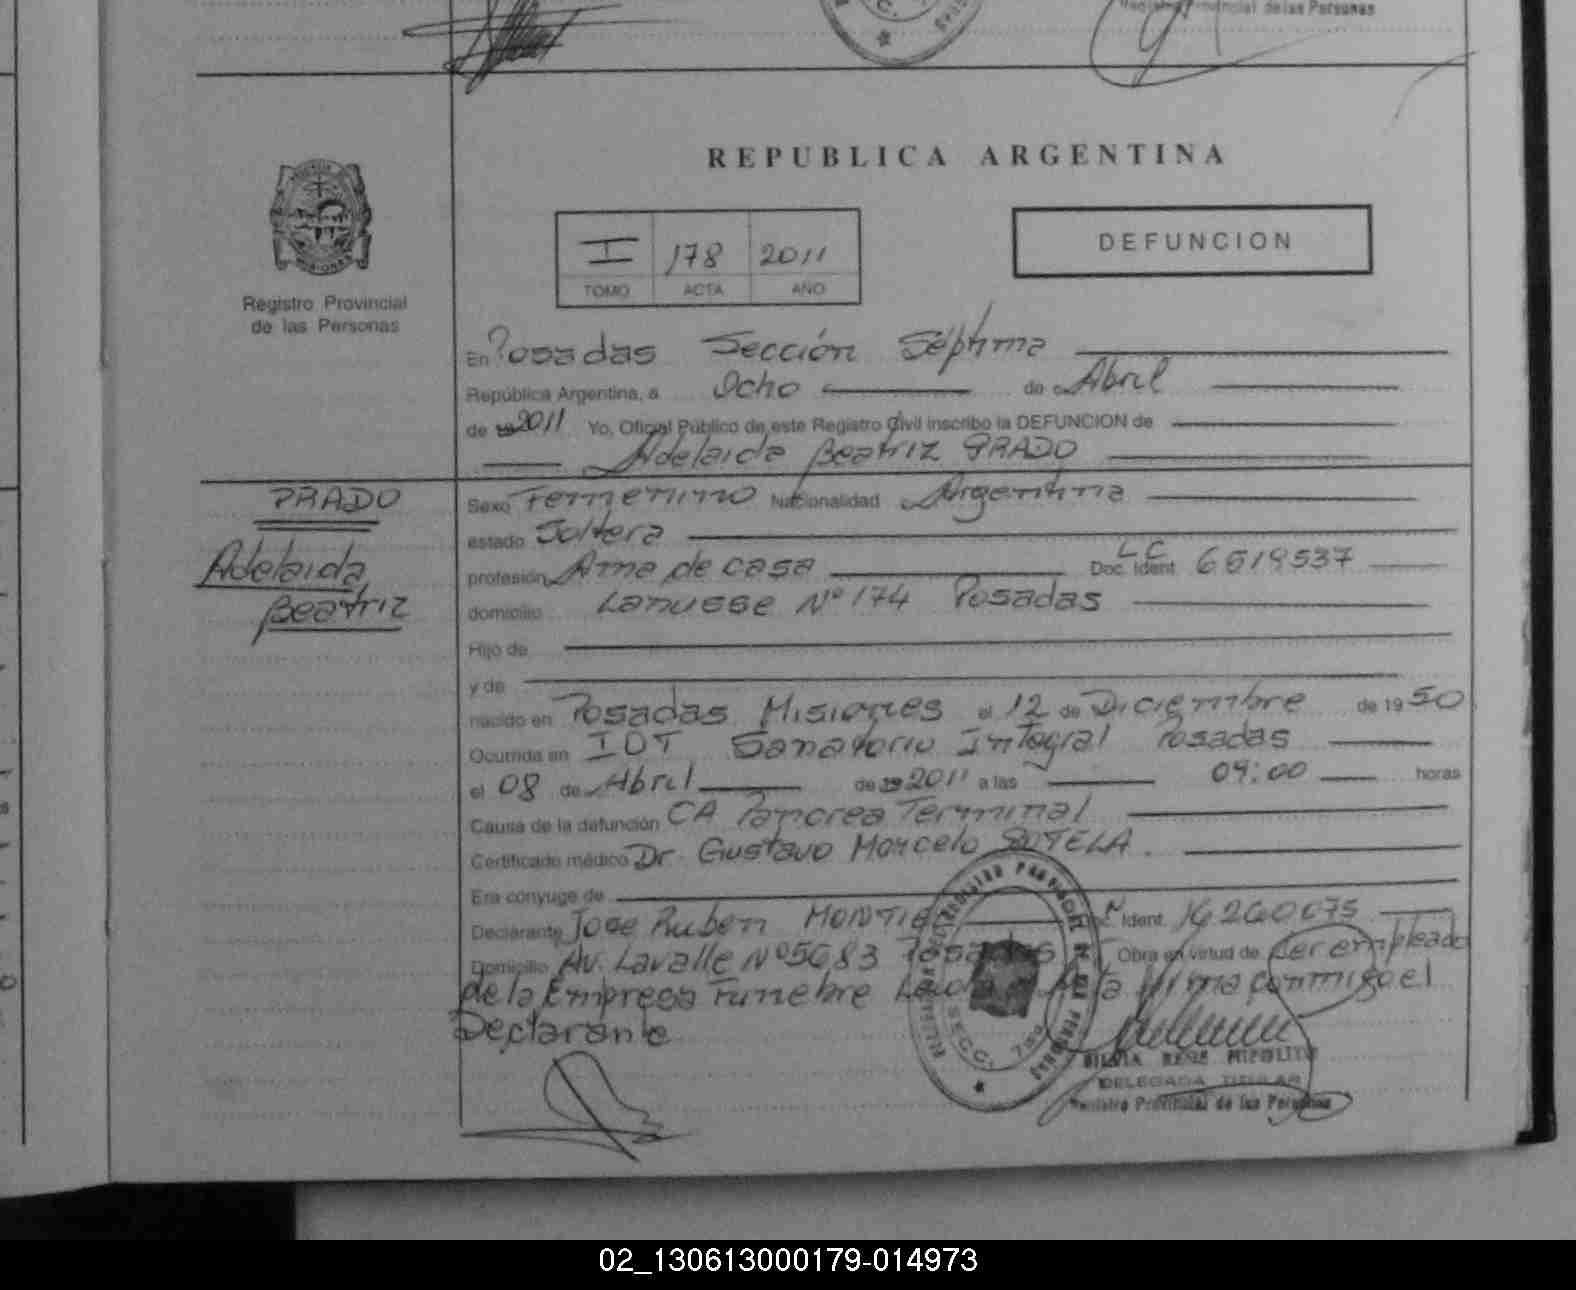 Registro Provincial de las Personas
REPUBLICA ARGENTINA
I 178 2011
TOMO ACTA AÑO
DEFUNCION
MISIONES
Registro Provincial
de las Personas
En Posadas Sección Séptima
República Argentina, a Ocho de Abril
de 2011 Yo, Oficial Público de este Registro Civil inscribo la DEFUNCION de
Adelaida Beatriz PRADO
PRADO
Adelaida
Beatriz
Sexo Femenino Nacionalidad Argentina
estado Soltera
profesión Ama de casa Doc. Ident. LC 6619537
domicilio Lanusse Nº 174 Posadas
Hijo de
y de
nacido en Posadas Misiones el 12 de Diciembre de 1950
Ocurrida en IOT Sanatorio Integral Posadas
el 08 de Abril de 2011 a las 09:00 horas
Causa de la defunción CA Pancrea Terminal
Certificado médico Dr. Gustavo Marcelo SOTELA
Era cónyuge de
Declarante Jose Ruben Ident. 16260075
Domicilio Av. Lavalle Nº 5683 Posadas Obra en virtud de Ser empleado
de la Empresa Funebre firma conmigo el
Declarante
SECC. 7ma
SILVIA HIPOLITO
DELEGADA TITULAR
Registro Provincial de las Personas
02_130613000179-014973